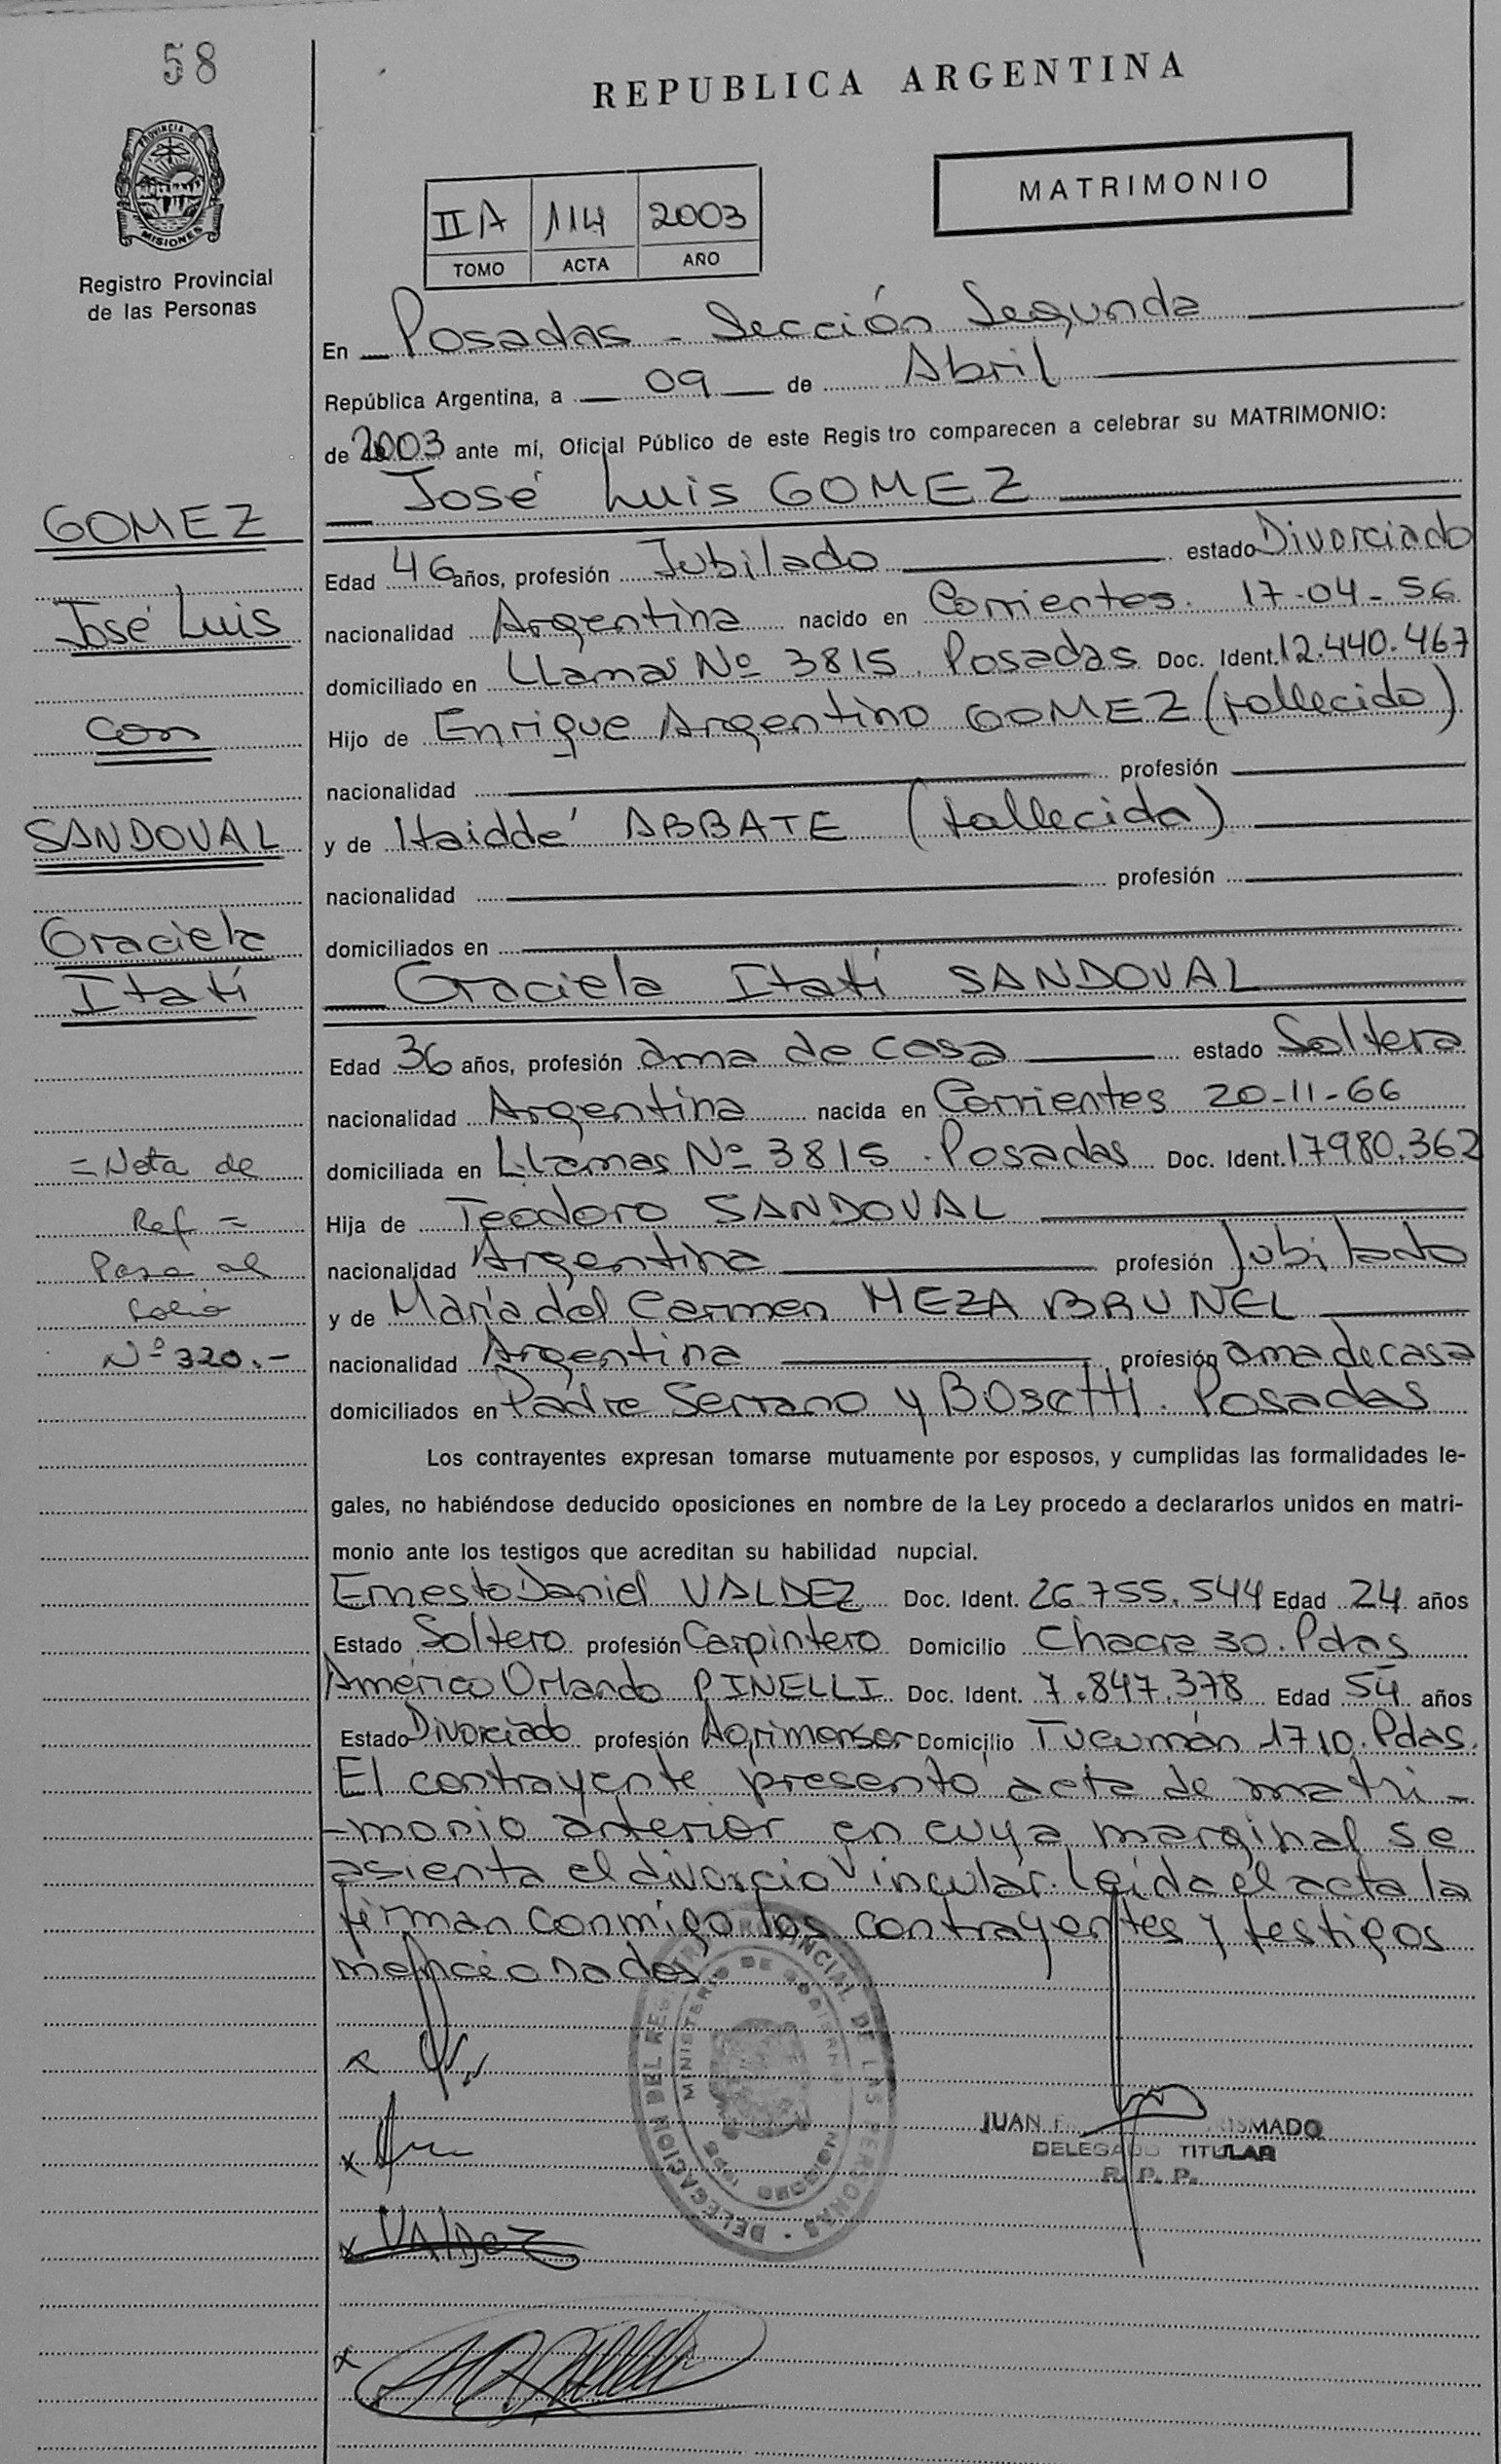 58
REPUBLICA ARGENTINA
PROVINCIA DE
MISIONES
MATRIMONIO
II A 114 2003
TOMO ACTA AÑO
Registro Provincial
de las Personas
En Posadas - Sección Segunda
República Argentina, a 09 de Abril
de 2003 ante mí, Oficial Público de este Regis tro comparecen a celebrar su MATRIMONIO:
José Luis GOMEZ
GOMEZ
Edad 46 años, profesión Jubilado estado Divorciado
José Luis
nacionalidad Argentina nacido en Corrientes. 17-04-56
domiciliado en Llamas Nº 3815. Posadas Doc. Ident. 12.440.467
con
Hijo de Enrique Argentino GOMEZ (fallecido)
nacionalidad profesión
SANDOVAL
y de Haiddé ABBATE (fallecida)
nacionalidad profesión
Graciela
domiciliados en
Itatí
Graciela Itatí SANDOVAL
Edad 36 años, profesión ama de casa estado Soltera
nacionalidad Argentina nacida en Corrientes 20-11-66
=Nota de
domiciliada en Llamas Nº 3815. Posadas Doc. Ident. 17980.362
Ref =
Hija de Teodoro SANDOVAL
Pasa al
nacionalidad Argentina profesión Jubilado
folio
y de María del Carmen MEZA BRUNEL
Nº 320.-
nacionalidad Argentina profesión ama de casa
domiciliados en Padre Serrano y Bosetti. Posadas
Los contrayentes expresan tomarse mutuamente por esposos, y cumplidas las formalidades le-
gales, no habiéndose deducido oposiciones en nombre de la Ley procedo a declararlos unidos en matri-
monio ante los testigos que acreditan su habilidad nupcial.
Ernesto Daniel VALDEZ Doc. Ident. 26.755.544 Edad 24 años
Estado Soltero profesión Carpintero Domicilio Chacra 30. Pdas
Américo Orlando PINELLI Doc. Ident. 7.847.378 Edad 54 años
Estado Divorciado profesión Agrimensor Domicilio Tucumán 1710. Pdas.
El contrayente presentó acta de matri-
-monio anterior en cuya marginal se
asienta el divorcio vincular. Leída el acta la
firman conmigo los contrayentes y testigos
mencionados
DELEGACION DEL REGISTRO PROVINCIAL DE LAS PERSONAS
MINISTERIO DE GOBIERNO
JUAN
DELEGADO TITULAR
R. P. P.
VALDEZ